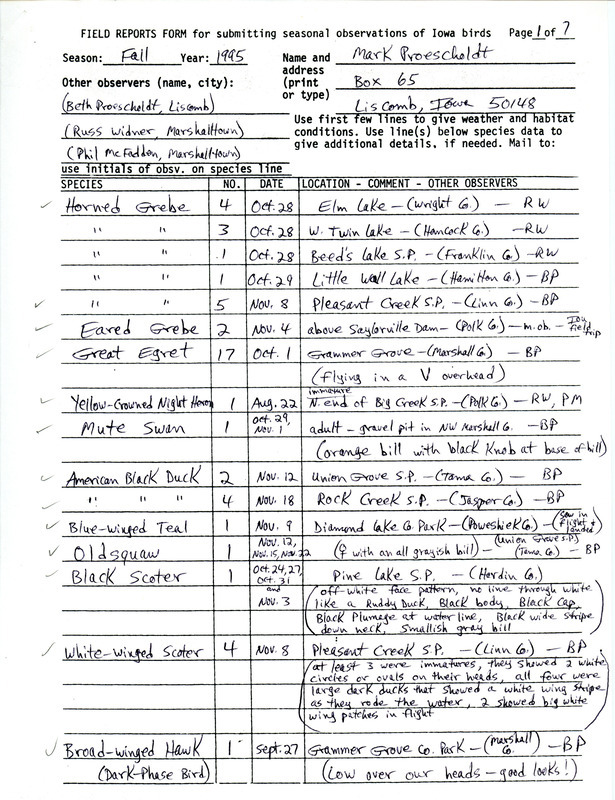 FIELD REPORTS FORM for submitting seasonal observations of Iowa birds Page 1 of 7
Season: Fall Year: 1995 Name and address (print or type) Mark Proescholdt
Box 65
Liscomb, Iowa 50148
Other observers (name, city):
(Beth Proescholdt, Liscomb)
(Russ Widner, Marshalltown)
(Phil McFadden, Marshalltown)
use initials of obsv. on species line
Use first few lines to give weather and habitat
conditions. Use line(s) below species data to
give additional details, if needed. Mail to:
SPECIES NO. DATE LOCATION - COMMENT - OTHER OBSERVERS
✓ Horned Grebe 4 Oct. 28 Elm Lake - (Wright Co.) - RW
" " 3 Oct. 28 W. Twin Lake - (Hancock Co.) - RW
" " 1 Oct. 28 Beed's Lake S.P. - (Franklin Co.) - RW
" " 1 Oct. 29 Little Wall Lake - (Hamilton Co.) - BP
✓ " " 5 Nov. 8 Pleasant Creek S.P. - (Linn Co.) - BP
✓ Eared Grebe 2 Nov. 4 above Saylorville Dam - (Polk Co.) - m.ob. - IOU Field trip
✓ Great Egret 17 Oct. 1 Grammer Grove - (Marshall Co.) - BP
(flying in a V overhead)
✓ Yellow-Crowned Night Heron 1 Aug. 22 immature N. end of Big Creek S.P. - (Polk Co.) - RW, PM
✓ Mute Swan 1 Oct. 29, Nov. 1 adult - gravel pit in NW Marshall Co. - BP
(orange bill with black knob at base of bill)
✓ American Black Duck 2 Nov. 12 Union Grove S.P. - (Tama Co.) - BP
✓ " " " 4 Nov. 18 Rock Creek S.P. - (Jasper Co.) - BP
✓ Blue-winged Teal 1 Nov. 9 Diamond Lake Co. Park - (Poweshiek Co.) - (saw in flight & landed)
✓ Oldsquaw 1 Nov. 12, Nov. 15, Nov. 22 (♀ with an all grayish bill) - (Union Grove S.P.) (Tama Co.) - BP
✓ Black Scoter 1 Oct. 24, 27, Oct. 31 and Nov. 3 Pine Lake S.P. - (Hardin Co.)
(off-white face pattern, no line through white
like a Ruddy Duck, Black body, Black Cap,
Black Plumage at water line, Black wide stripe
down neck, smallish gray bill)
✓ White-winged Scoter 4 Nov. 8 Pleasant Creek S.P. - (Linn Co.) - BP
(at least 3 were immatures, they showed 2 white
circles or ovals on their heads, all four were
large dark ducks that showed a white wing stripe
as they rode the water, 2 showed big white
wing patches in flight)
✓ Broad-winged Hawk 1 Sept. 27 Grammer Grove Co. Park - (Marshall Co.) - BP
(Dark-Phase Bird) (Low over our heads - good looks!)